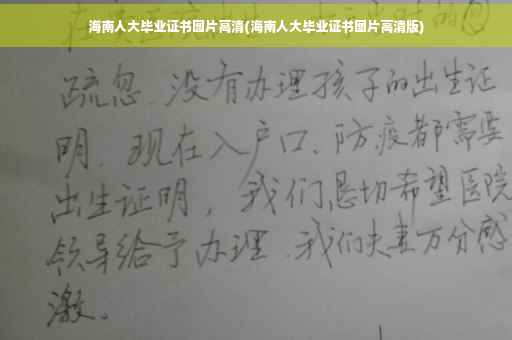 海南人大毕业证书图片高清(海南人大毕业证书图片高清版)
疏忽、没有办理孩子的出生证
明。现在入户口、防疫都需要
出生证明，我们恳切希望医院
领导给予办理、我们夫妻万分感
激。